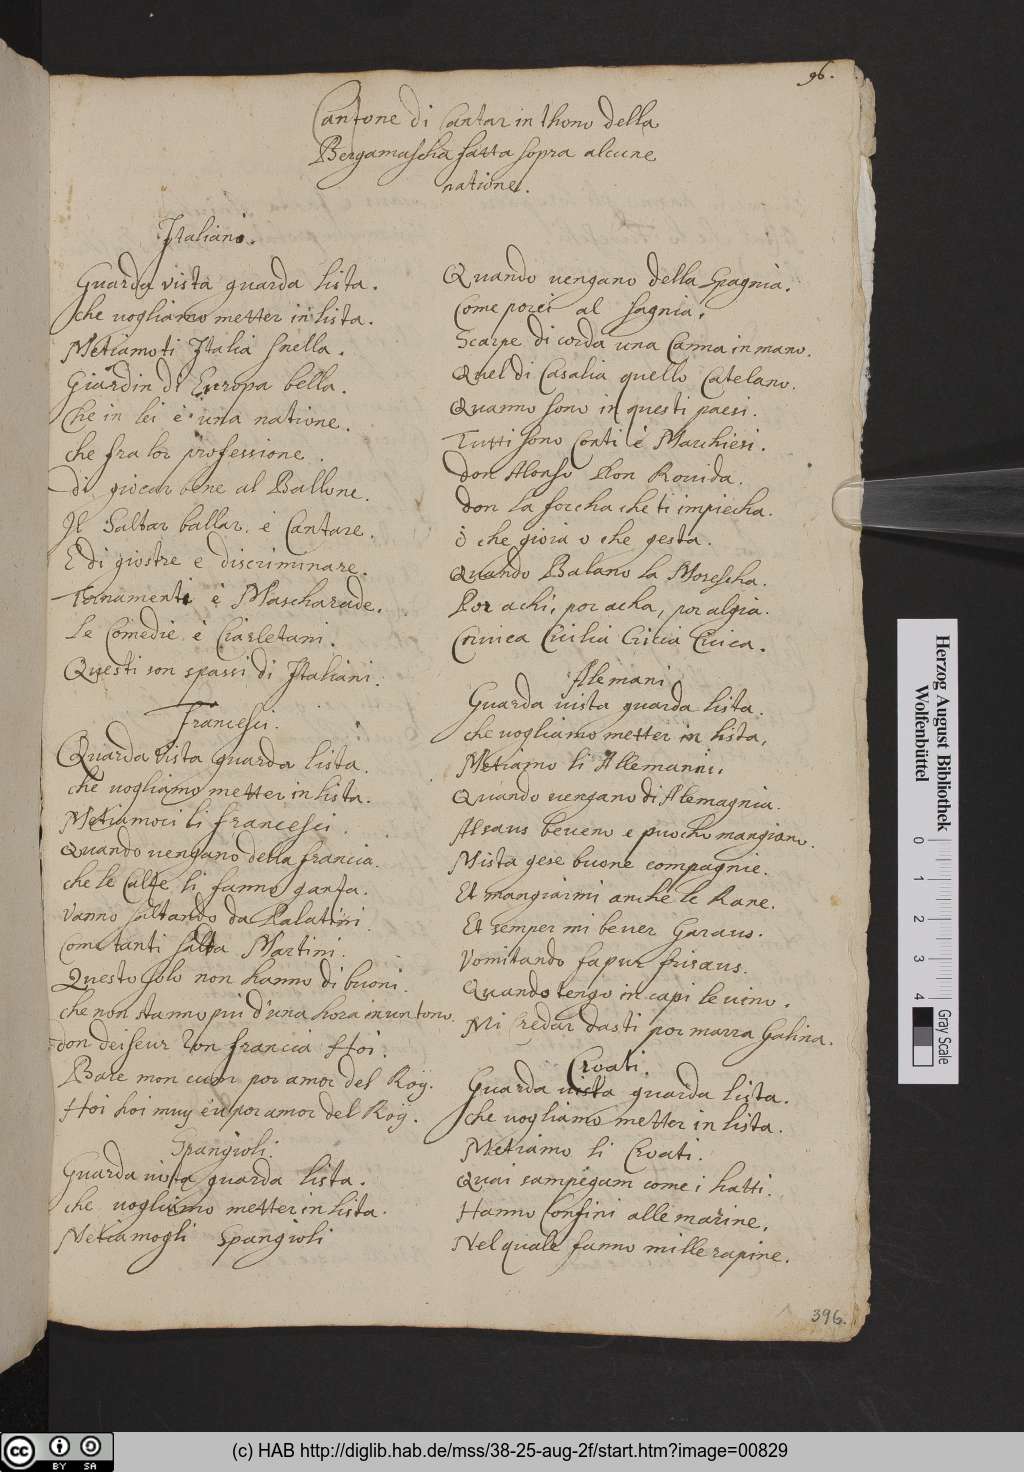 96.
Canzone di Cantar in thono della
Bergamascha fatta sopra alcune
natione.
Italiani.
Guarda vista guarda lista.
che uogliamo metter in lista.
Metiamoti Italia snella.
Giardin di Europa bella.
Che in lei è una natione.
che fra lor professione.
di giocar bene al Ballone.
Il Saltar ballar. è Cantare.
E di giostre e discriminare.
Tornamenti è Mascharade.
Le Comedie è Ciarletani.
Questi son spassi di Italiani.
Francesi.
Quarda vista guarda lista.
che uogliamo metter in lista.
Metiamoci li francesci.
Quando uengano della francia.
che le Calze li fanno ganza.
Vanno saltando da Palatini
Come tanti salta Martini.
Questo solo non hanno di buoni.
che non stanno piu d'una hora in un tono.
don deiseur Von francia Hoi.
Bare mon cuor por amor del Roy.
Hoi hoi muy eu por amor del Roy.
Spangioli.
Guarda uista guarda lista.
che uogliamo metter in lista.
Metiamogli Spangioli
Quando uengano della Spagnia.
Come porci al sagnia.
Scarpe di corda una Canna in mano.
Quel di Casalia quello Catelano.
Quanno sono in questi paesi.
Tutti sono Conti è Marchiesi.
don Alonso Don Rouida.
don la forcha che ti impiecha.
ò che gioia o che gesta.
Quando Balano la Morescha.
Por achi, por acha, por algia.
Cruica Ciuilia Cicia Ciuica.
Alemani
Guarda uista guarda lista.
che uogliamo metter in lista.
Metiamo li Allemanni.
Quando uengano di Alemagnia.
Alsaus beueno e puocho mangiano.
Mista gese buone compagnie.
Et mangiarmi anche le Rane.
Et semper mi beuer Garaus.
Vomitando fa pur frisaus.
Quando tengo in capi le uino.
Mi credar dasti por marra Galina.
Croati.
Guarda uista guarda lista.
che uogliamo metter in lista.
Metiamo li Croati.
Quai rampegam come i hatti.
Hanno Confini alle marine.
Nel quale fanno mille rapine.
396.
Herzog August Bibliothek
Wolfenbüttel
0 1 2 3 4
Gray Scale
(c) HAB http://diglib.hab.de/mss/38-25-aug-2f/start.htm?image=00829
cc BY SA